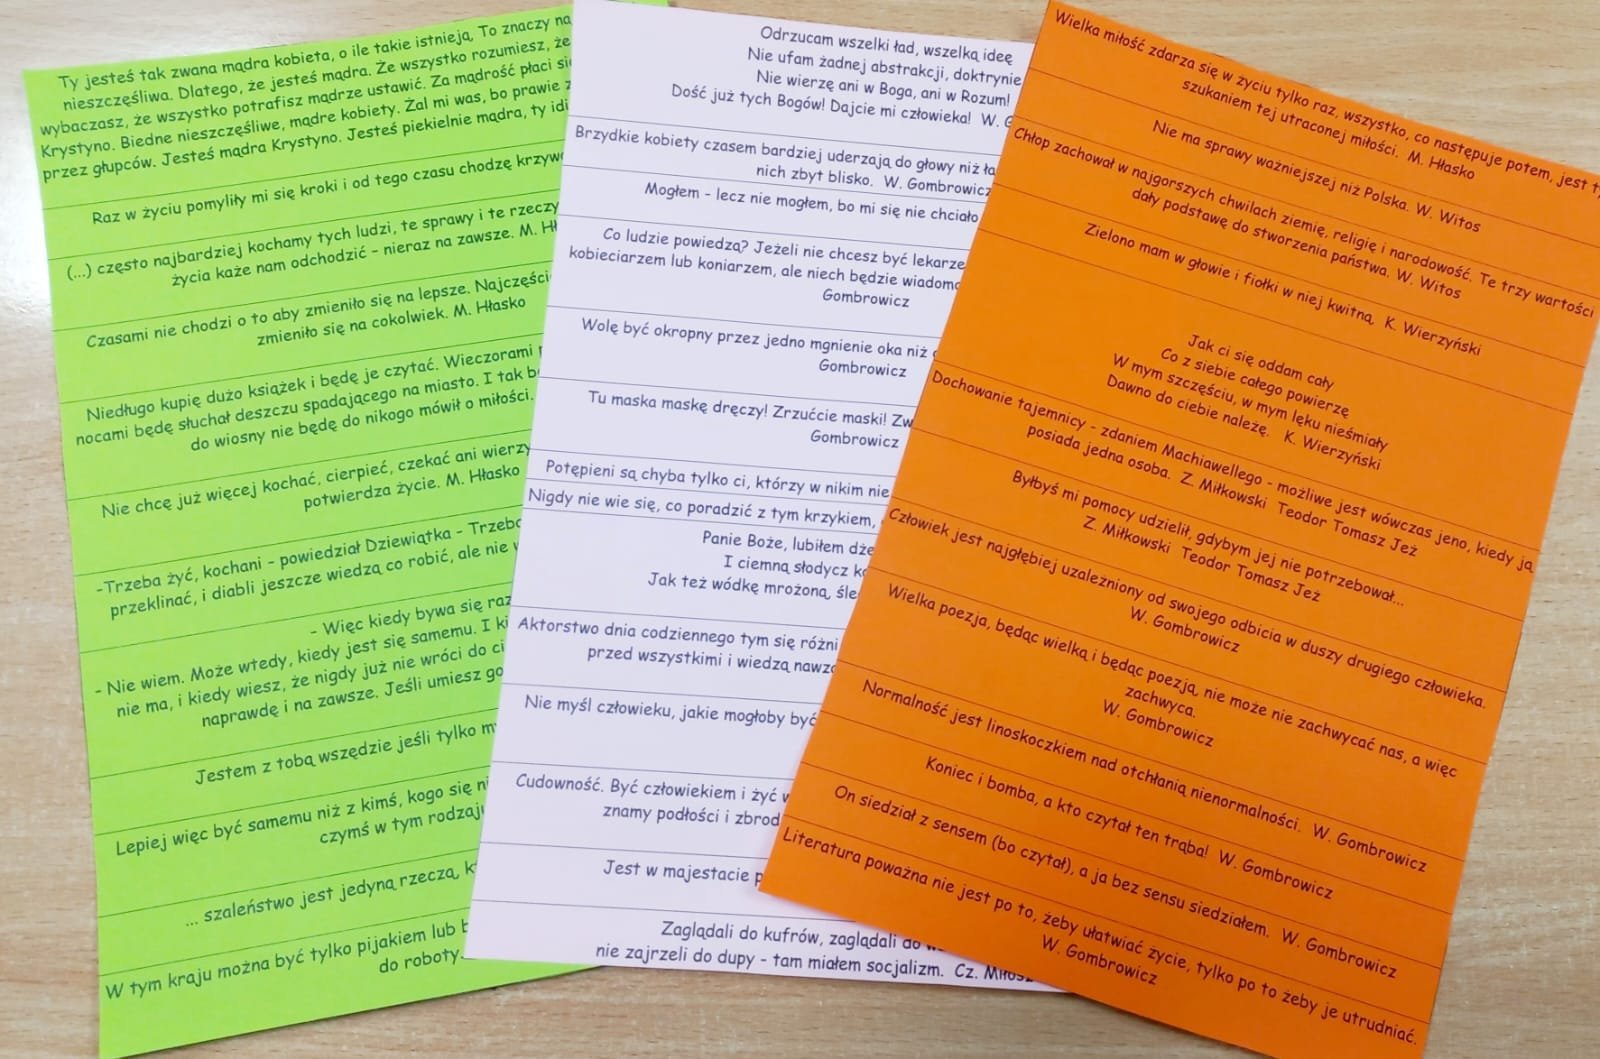 Ty jesteś tak zwana mądra kobieta, o ile takie istnieją. To znaczy
nieszczęśliwa. Dlatego, że jesteś mądra. Że wszystko rozumiesz, że
wybaczasz, że wszystko potrafisz mądrze ustawić. Za mądrość płaci
Krystyno. Biedne nieszczęśliwe, mądre kobiety. Żal mi was, bo prawie
przez głupców. Jesteś mądra Krystyno. Jesteś piekielnie mądra, ty
Raz w życiu pomyliły mi się kroki i od tego czasu chodzę
(...) często najbardziej kochamy tych ludzi, te sprawy i te rzeczy
życia każe nam odchodzić - nieraz na zawsze. M.
Czasami nie chodzi o to aby zmieniło się na lepsze.
zmieniło się na cokolwiek. M. Hłasko
Niedługo kupię dużo książek i będę je czytać. Wieczorami
nocami będę słuchał deszczu spadającego na miasto. I tak
do wiosny nie będę do nikogo mówił o miłości.
Nie chcę już więcej kochać, cierpieć, czekać ani
potwierdza życie. M. Hłasko
-Trzeba żyć, kochani - powiedział Dziewiątka -
przeklinać, i diabli jeszcze wiedzą co robić, ale nie
- Więc kiedy bywa się
- Nie wiem. Może wtedy, kiedy jest się samemu. I
nie ma, i kiedy wiesz, że nigdy już nie wróci do
naprawdę i na zawsze. Jeśli umiesz
Jestem z tobą wszędzie jeśli tylko
Lepiej więc być samemu niż z kimś, kogo się
czymś w tym rodzaju
... szaleństwo jest jedyną rzeczą,
W tym kraju można być tylko pijakiem lub
do roboty.
Odrzucam wszelki ład, wszelką ideę
Nie ufam żadnej abstrakcji, doktrynie
Nie wierzę ani w Boga, ani w Rozum!
Dość już tych Bogów! Dajcie mi człowieka! W.
Brzydkie kobiety czasem bardziej uderzają do głowy niż
nich zbyt blisko. W. Gombrowicz
Mogłem - lecz nie mogłem, bo mi się nie chciało
Co ludzie powiedzą? Jeżeli nie chcesz być
kobieciarzem lub koniarzem, ale niech będzie
Gombrowicz
Wolę być okropny przez jedno mgnienie oka niż
Gombrowicz
Tu maska maskę dręczy! Zrzućcie maski!
Gombrowicz
Potępieni są chyba tylko ci, którzy w nikim nie
Nigdy nie wie się, co poradzić z tym krzykiem,
Panie Boże, lubiłem
I ciemną słodycz
Jak też wódkę mrożoną,
Aktorstwo dnia codziennego tym się różni
przed wszystkimi i wiedzą
Nie myśl człowieku, jakie mogłoby być
Cudowność. Być człowiekiem i żyć
znamy podłości i
Jest w majestacie
Zaglądali do kufrów, zaglądali do
nie zajrzeli do dupy - tam miałem socjalizm. Cz. Miłosz
Wielka miłość zdarza się w życiu tylko raz, wszystko, co następuje potem, jest
szukaniem tej utraconej miłości. M. Hłasko
Nie ma sprawy ważniejszej niż Polska. W. Witos
Chłop zachował w najgorszych chwilach ziemię, religię i narodowość. Te trzy wartości
dały podstawę do stworzenia państwa. W. Witos
Zielono mam w głowie i fiołki w niej kwitną. K. Wierzyński
Jak ci się oddam cały
Co z siebie całego powierzę
W mym szczęściu, w mym lęku nieśmiały
Dawno do ciebie należę. K. Wierzyński
Dochowanie tajemnicy - zdaniem Machiawellego - możliwe jest wówczas jeno, kiedy ją
posiada jedna osoba. Z. Miłkowski Teodor Tomasz Jeż
Byłbyś mi pomocy udzielił, gdybym jej nie potrzebował...
Z. Miłkowski Teodor Tomasz Jeż
Człowiek jest najgłębiej uzależniony od swojego odbicia w duszy drugiego człowieka.
W. Gombrowicz
Wielka poezja, będąc wielką i będąc poezją, nie może nie zachwycać nas, a więc
zachwyca.
W. Gombrowicz
Normalność jest linoskoczkiem nad otchłanią nienormalności. W. Gombrowicz
Koniec i bomba, a kto czytał ten trąba! W. Gombrowicz
On siedział z sensem (bo czytał), a ja bez sensu siedziałem. W. Gombrowicz
Literatura poważna nie jest po to, żeby ułatwiać życie, tylko po to żeby je utrudniać.
W. Gombrowicz